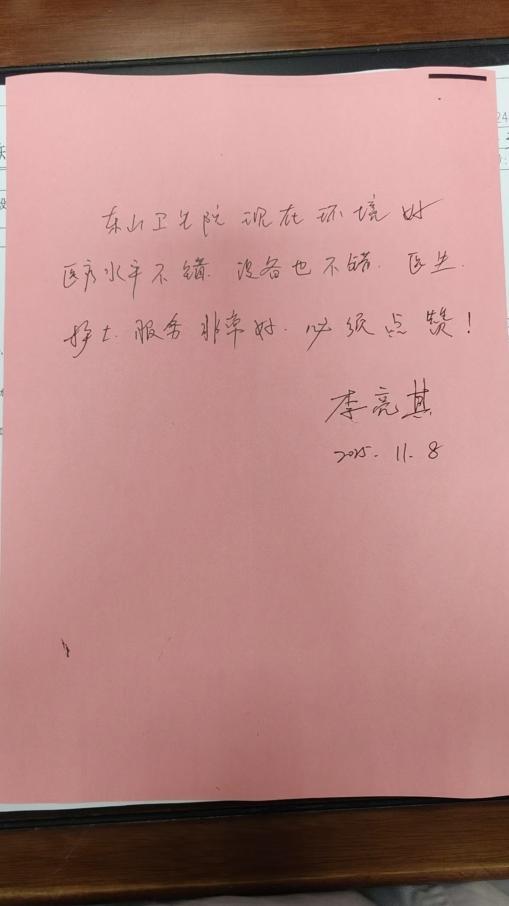 东山卫生院现在环境好
医疗水平不错.设备也不错.医生.
护士.服务非常好.必须点赞!
李亮其
2025.11.8
24